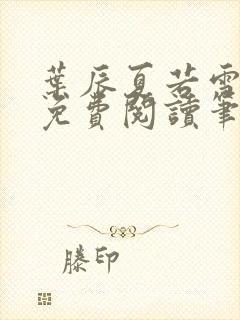 葉辰夏若雪
免費閱讀筆
滕印